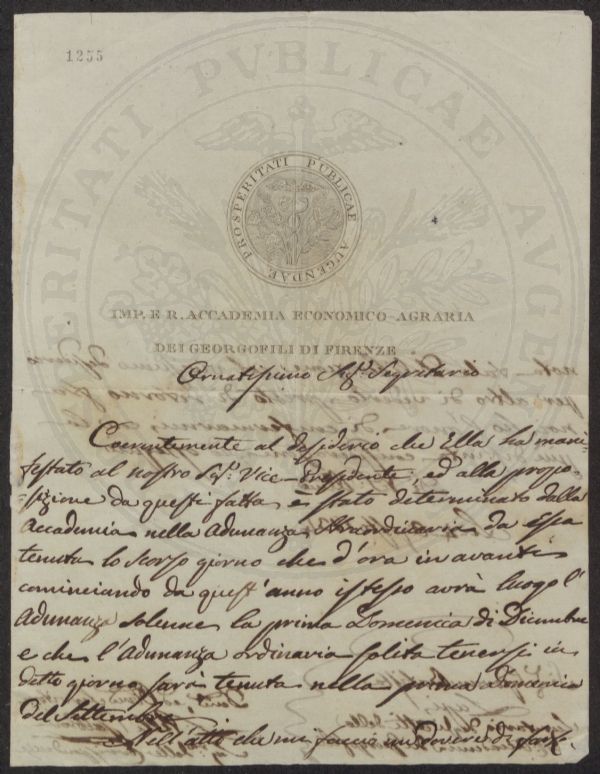 1255
PROSPERITATI PUBLICAE AUGENDAE
IMP. E R. ACCADEMIA ECONOMICO-AGRARIA
DEI GEORGOFILI DI FIRENZE
Ornatissimo Sigr. Segretario
Coerentemente al desiderio che Ella ha mani=
festato al nostro Sigr. Vice-Presidente, ed alla propo=
sizione da questi fatta è stato determinato dalla
Accademia nella Adunanza straordinaria da essa
tenuta lo scorso giorno che d'ora in avanti
cominciando da quest'anno istesso avrà luogo l'
Adunanza solenne la prima Domenica di Dicembre
e che l'Adunanza ordinaria solita tenersi in
detto giorno sarà tenuta nella prima Domenica
del Settembre
Nell'atto che mi faccio un dovere di far